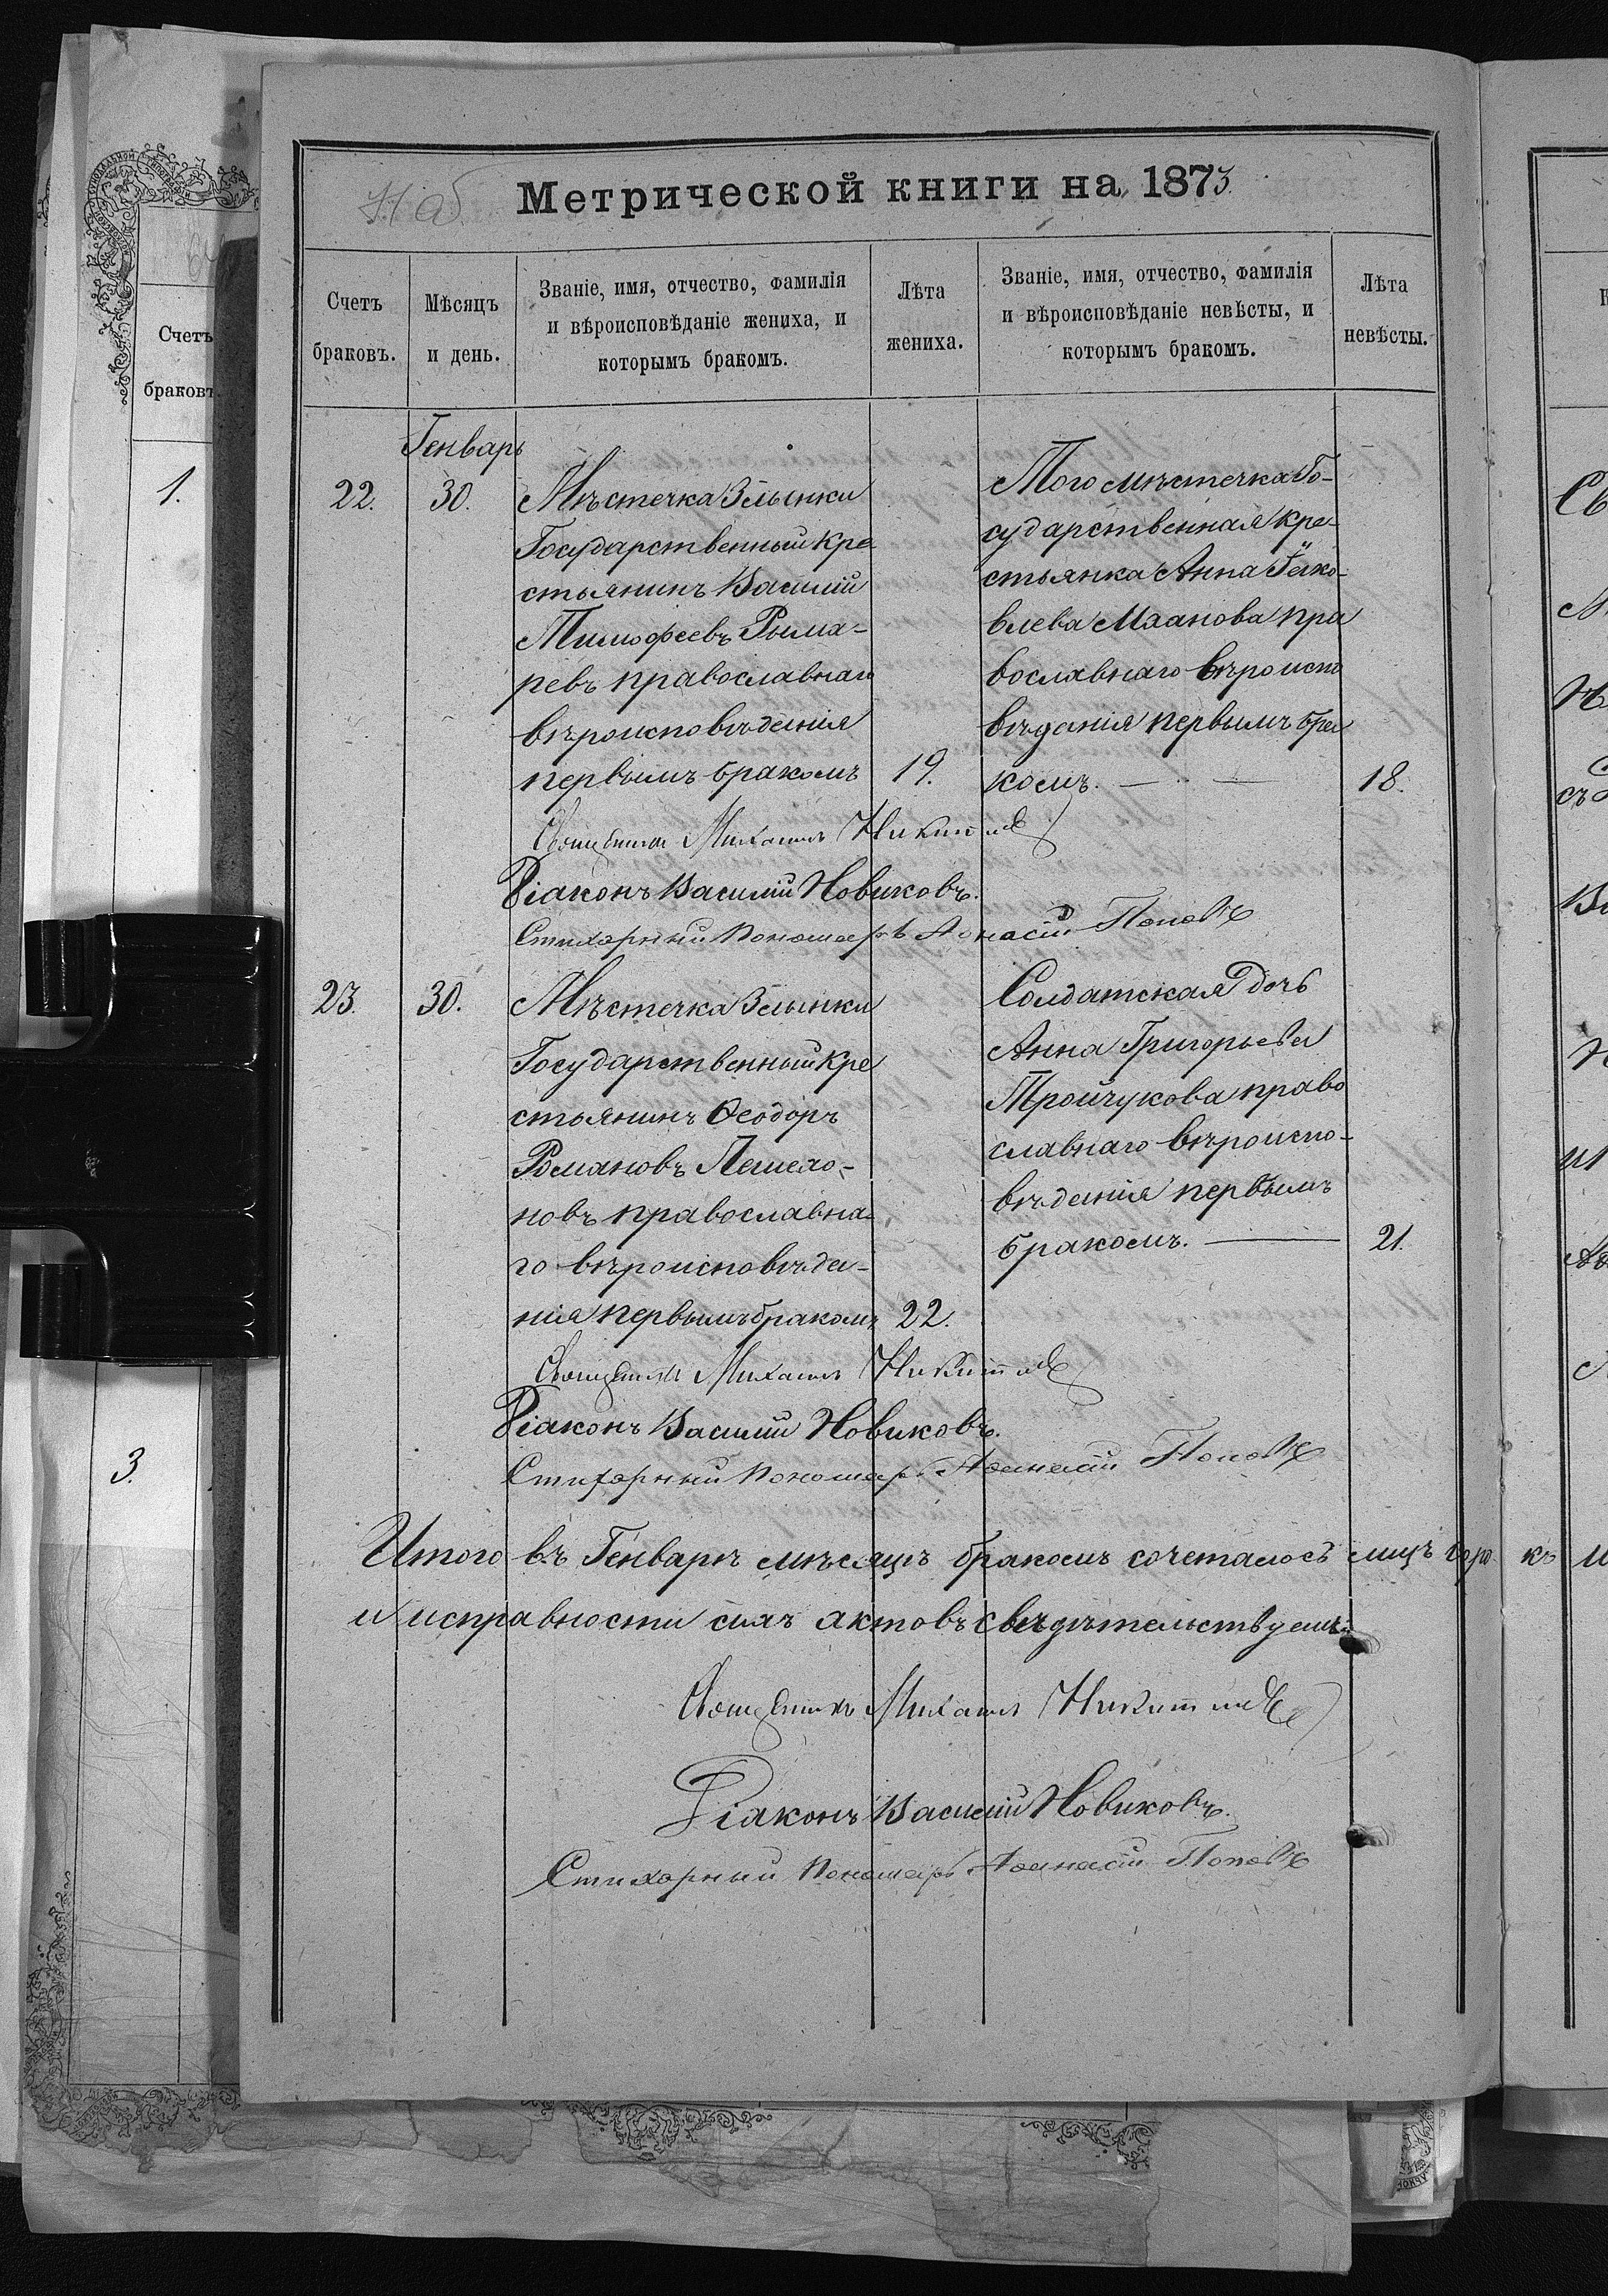 Метрической книги на 1873.
Счетъ браковъ.
Мѣсяцъ и день.
Званіе, имя, отчество, фамилія
и вѣроисповѣданіе жениха, и
которымъ бракомъ.
Лѣта
жениха.
Званіе, имя, отчество, фамилія
и вѣроисповѣданіе невѣсты, и
которымъ бракомъ.
Лѣта
невѣсты.
Генварь
22.
30.
Мѣстечка Злынки
Государственный кре
стьянинъ Василій
Тимофеевъ Рыма-
ревъ православнаго
вѣроисповѣданія
первымъ бракомъ
19.
Того мѣстечка Го-
сударственная кре-
стьянка Анна Іяко-
влева православнаго вѣроиспо
вѣданія первымъ бра
комъ.
18.
Священникъ Михаилъ Никитинъ
Діаконъ Василій Новиковъ.
Стихарный Пономарь Поповъ
23.
30.
Мѣстечка Злынки
Государственный кре
стьянинъ Ѳеодоръ
Романовъ
православна-
го вѣроисповѣда-
нія первымъ бракомъ
22.
Солдатская дочь
Анна Григорьева
Тройчукова право
славнаго вѣроиспо-
вѣданія первымъ
бракомъ.
21.
Священникъ Михаилъ Никитинъ
Діаконъ Василій Новиковъ.
Стихарный Пономарь Аѳанасій Поповъ
Итого въ Генварѣ мѣсяцѣ бракомъ сочеталось лицъ
и исправности сихъ актовъ свидѣтельствуемъ:
Священникъ Михаилъ Никитинъ
Діаконъ Василій Новиковъ.
Стихарный Пономарь Аѳанасій Поповъ
Счетъ
браковъ
1.
3.